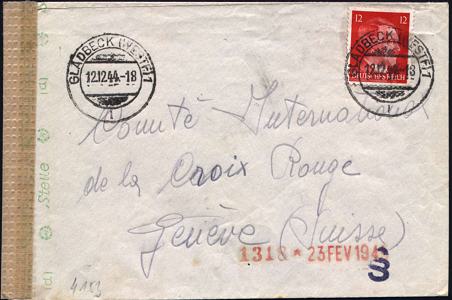 GLADBECK (WESTF) 1
12.12.44.-18
12 12
DEUTSCHES REICH
GLADBECK (WESTF) 1
12.12.44.-18
Comité International
de la Croix Rouge
Genève (Suisse)
1318 * 23 FEV 194
S
Stelle
4153